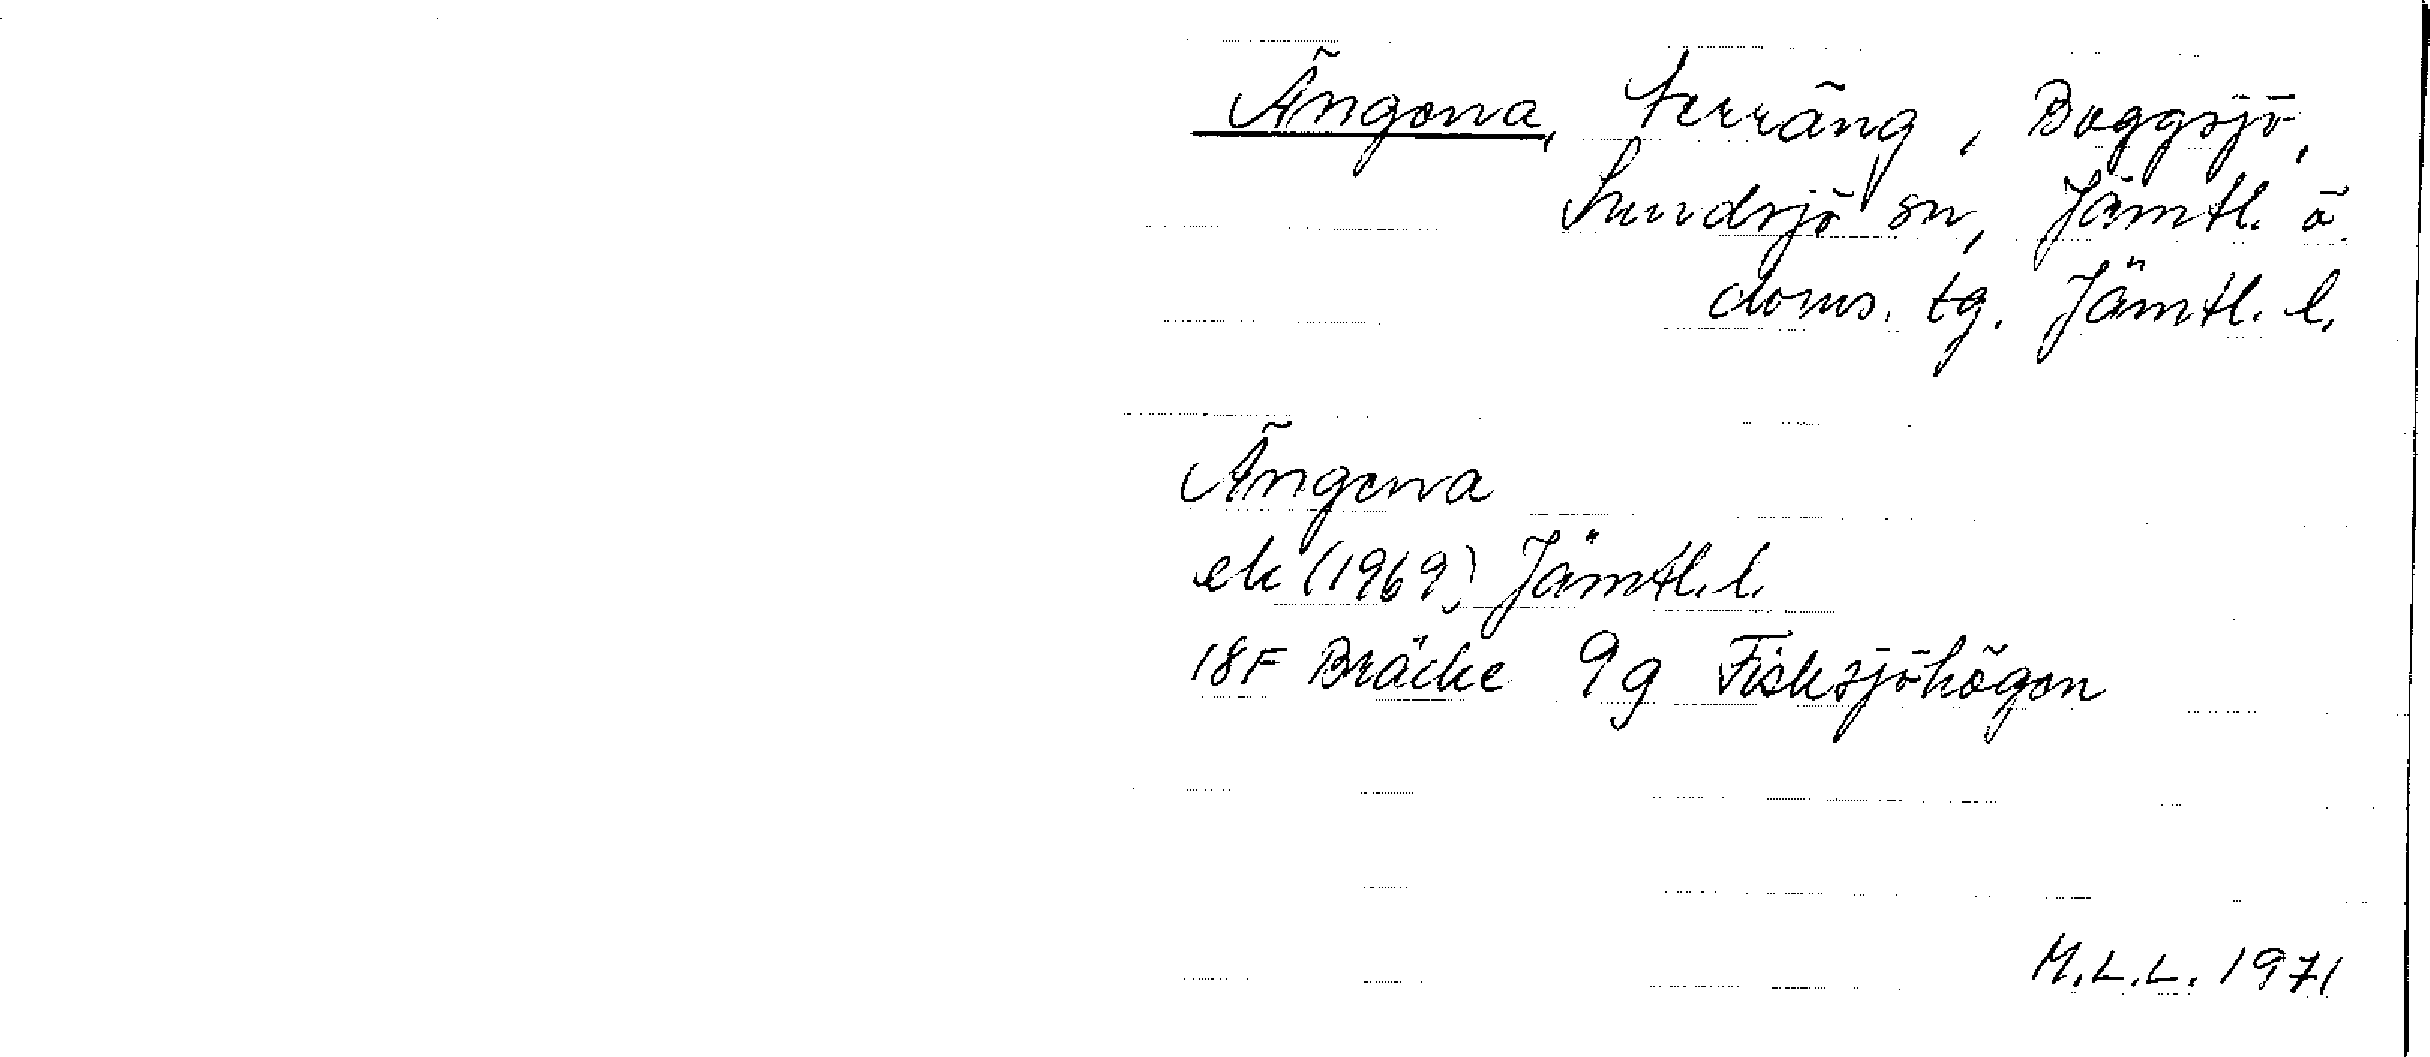 Ängena, terräng, Boggsjö,
Sundsjö sn, Jämtl. ö.
doms. tg. Jämtl. l.
Ängena
ek (1969) Jämtl. l.
18F Bräcke 9g Fisksjöhögen
M.L.L. 1971